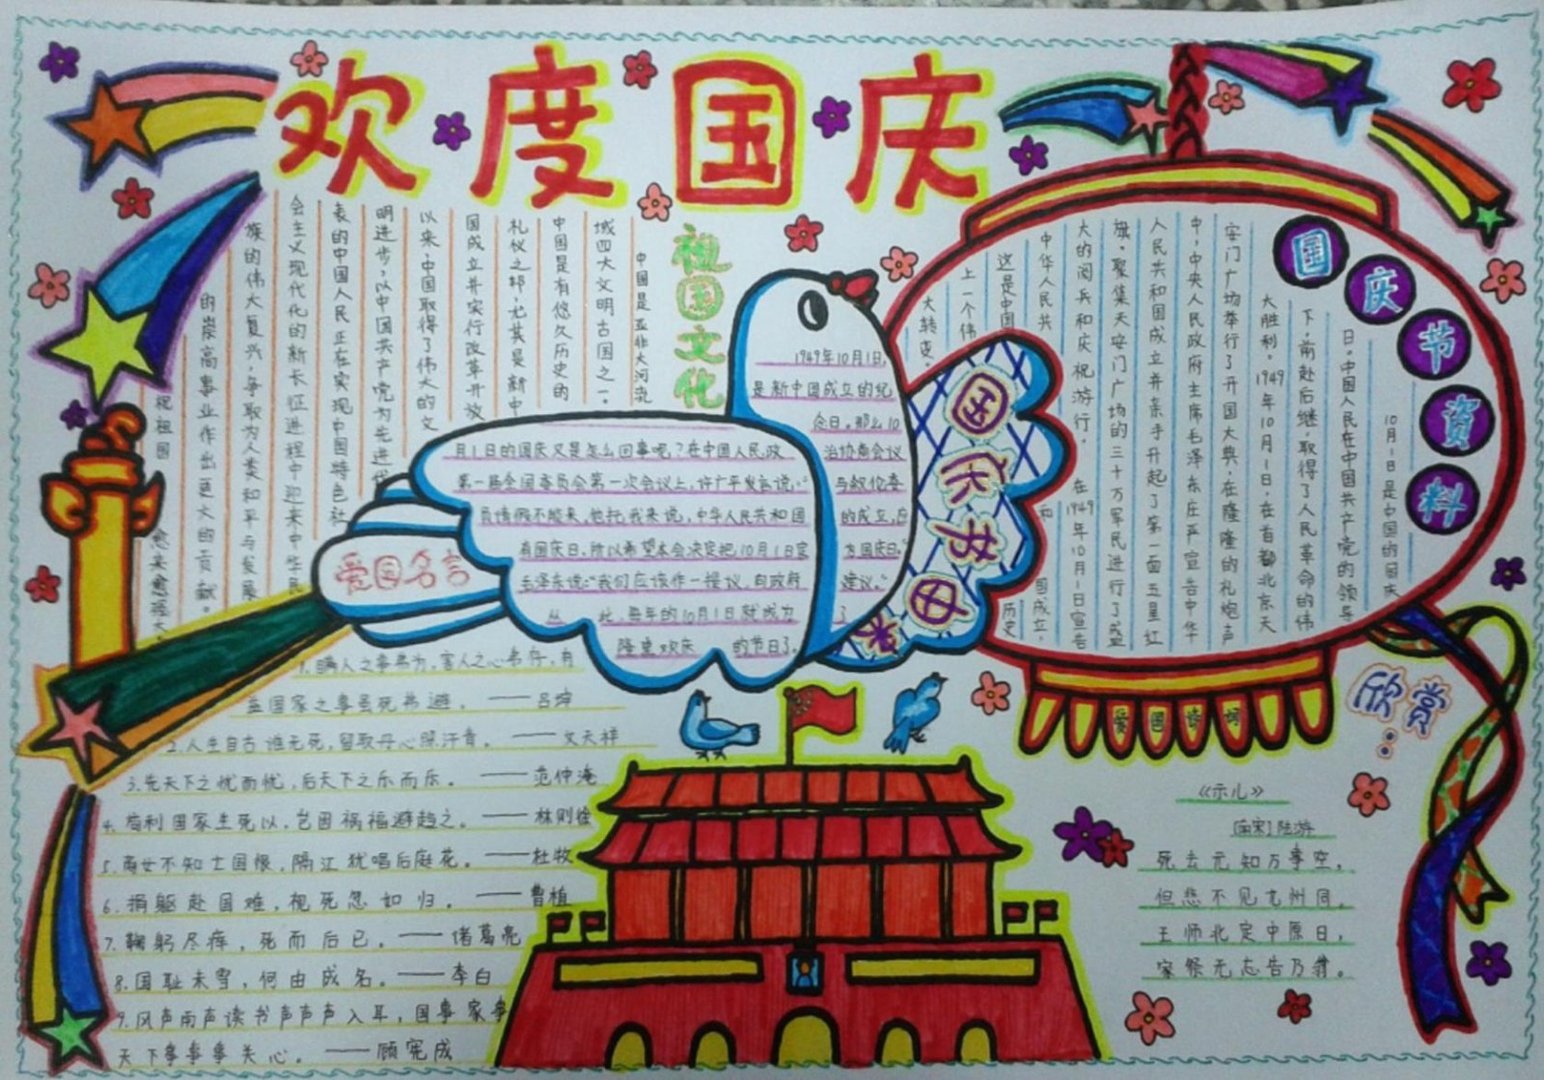 欢度国庆
祖国文化
中国是亚非大河流
域四大文明古国之一。
中国是有悠久历史的
礼仪之邦，尤其是新中
国成立并实行改革开放
以来，中国取得了伟大的文
明进步，以中国共产党为先进代
表的中国人民正在实现中国特色社
会主义现代化的新长征进程中迎来中华民
族的伟大复兴，争取为人类和平与发展
的崇高事业作出更大的贡献。
祝祖国
愈来愈强大
1949年10月1日，
是新中国成立的纪
念日。那么10
月1日的国庆又是怎么回事呢？在中国人民政 治协商会议
第一届全国委员会第一次会议上，许广平发言说，“
员请假不能来，他托我来说，中华人民共和国 的成立，应
有国庆日，所以希望本会决定把10月1日定 为国庆日。”
毛泽东说：“我们应该作一提议，向政府 建议。”
从此，每年的10月1日就成为了
隆重欢庆 的节日了。
国庆节由来
国庆节资料
10月1日是中国的国庆
日。中国人民在中国共产党的领导
下，前赴后继，取得了人民革命的伟
大胜利。1949年10月1日，在首都北京天
安门广场举行了开国大典，在隆隆的礼炮声
中，中央人民政府主席毛泽东庄严宣告中华
人民共和国成立并亲手升起了第一面五星红
旗。聚集天安门广场的三十万军民进行了盛
大的阅兵和庆祝游行。在1949年10月1日宣告
中华人民共和国成立，
这是中国历史
上一个伟
大转变
爱国名言
1.瞒人之事弗为，害人之心弗存，有
益国家之事虽死弗避。——吕坤
2.人生自古谁无死，留取丹心照汗青。——文天祥
3.先天下之忧而忧，后天下之乐而乐。——范仲淹
4.苟利国家生死以，岂因祸福避趋之。——林则徐
5.商女不知亡国恨，隔江犹唱后庭花。——杜牧
6.捐躯赴国难，视死忽如归。——曹植
7.鞠躬尽瘁，死而后已。——诸葛亮
8.国耻未雪，何由成名。——李白
9.风声雨声读书声声声入耳，国事家事
天下事事事关心。——顾宪成
爱国诗词
欣赏：
《示儿》
[南宋]陆游
死去元知万事空，
但悲不见九州同。
王师北定中原日，
家祭无忘告乃翁。